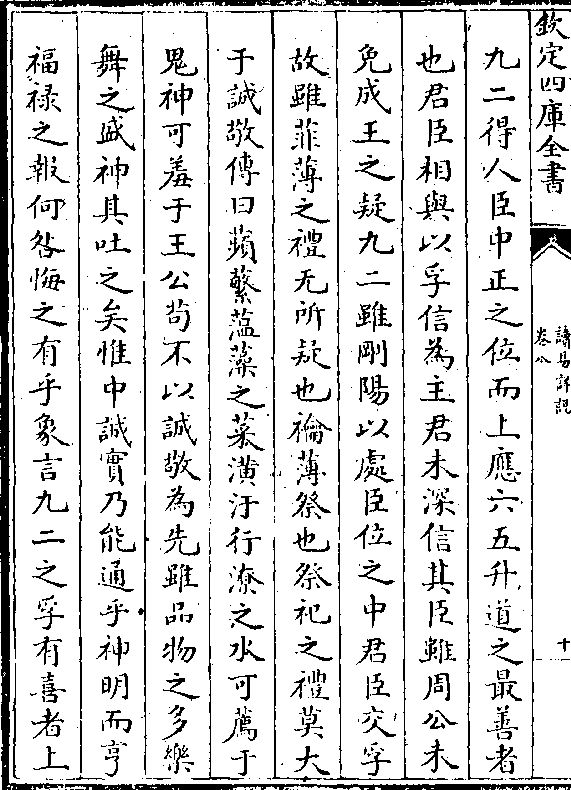 欽定四庫全書
讀易詳說
卷八
十
九二得人臣中正之位而上應六五升道之最善者
也君臣相與以孚信為主君未深信其臣雖周公未
免成王之疑九二雖剛陽以處臣位之中君臣交孚
故雖菲薄之禮无所疑也禴薄祭也祭祀之禮莫大
于誠敬傳曰蘋蘩薀藻之菜潢汙行潦之水可薦于
鬼神可羞于王公苟不以誠敬為先雖品物之多樂
舞之盛神其吐之矣惟中誠實乃能通乎神明而享
福禄之報何咎悔之有乎象言九二之孚有喜者上